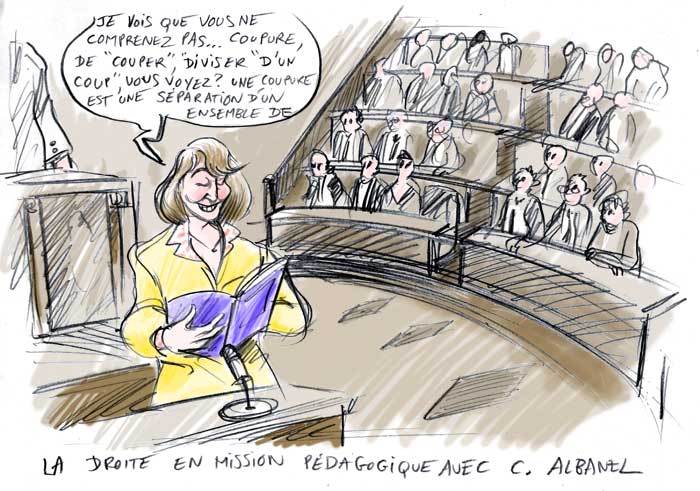 JE VOIS QUE VOUS NE
COMPRENEZ PAS... COUPURE,
DE "COUPER", DIVISER "D'UN
COUP", VOUS VOYEZ? UNE COUPURE
EST UNE SÉPARATION D'UN
ENSEMBLE DE
LA DROITE EN MISSION PÉDAGOGIQUE AVEC C. ALBANEL